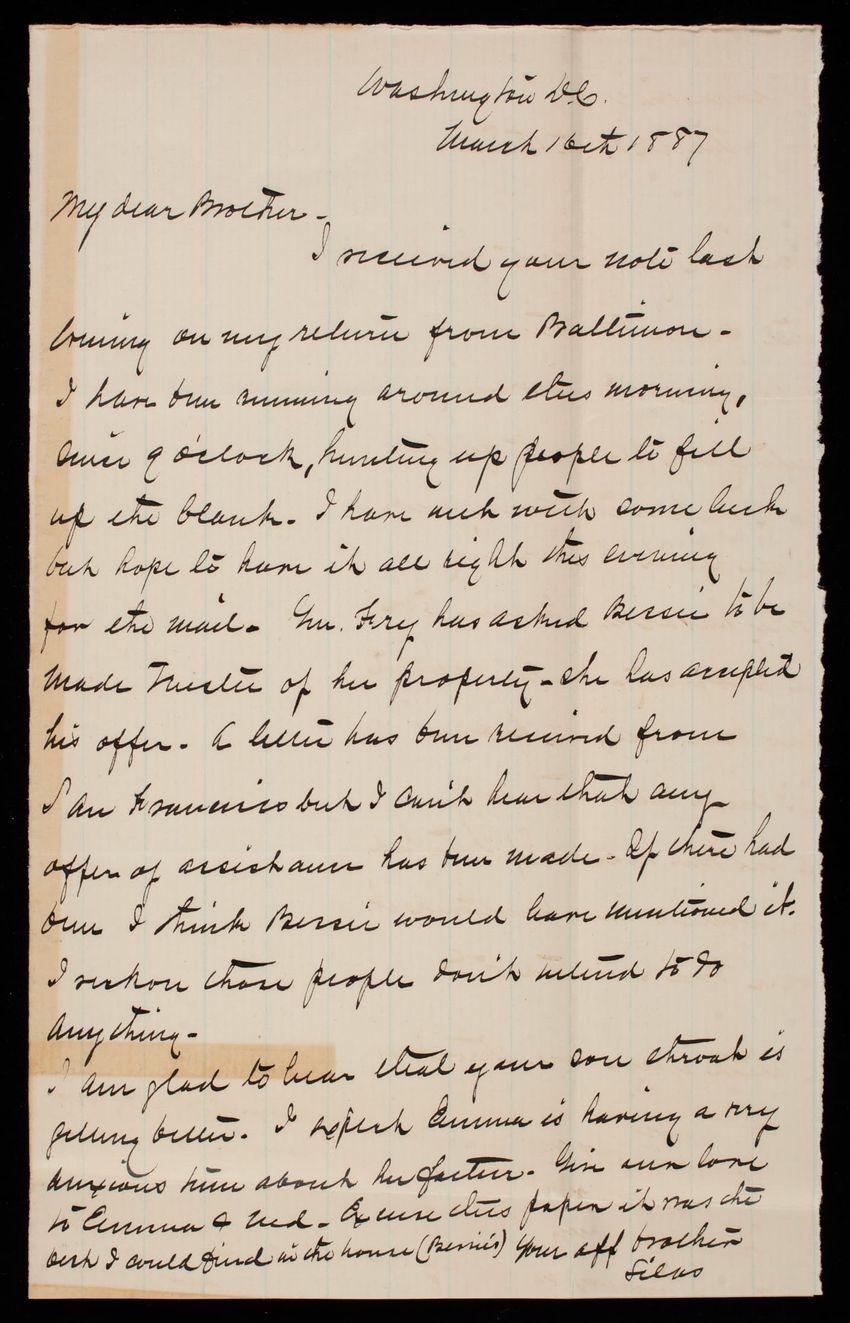 Washington D.C.
March 16th 1887
My dear Brother -
I received your note last
evening on my return from Baltimore -
I have been running around this morning,
since 9 o'clock, hunting up people to fill
up the blank. I have met with some luck
but hope to have it all right this evening
for the mail. Gen. Fry has asked Bessie to be
made Trustee of her property - she has accepted
his offer. A letter has been received from
San Francisco but I can't hear that any
offer of assistance has been made. If there had
been I think Bessie would have mentioned it.
I reckon those people don't intend to do
anything -
I am glad to hear that your sore throat is
getting better. I expect Emma is having a very
anxious time about her father. Give our love
to Emma & Ned. Excuse this paper it was the
best I could find in the house (Bessie's) Your aff brother
Silas